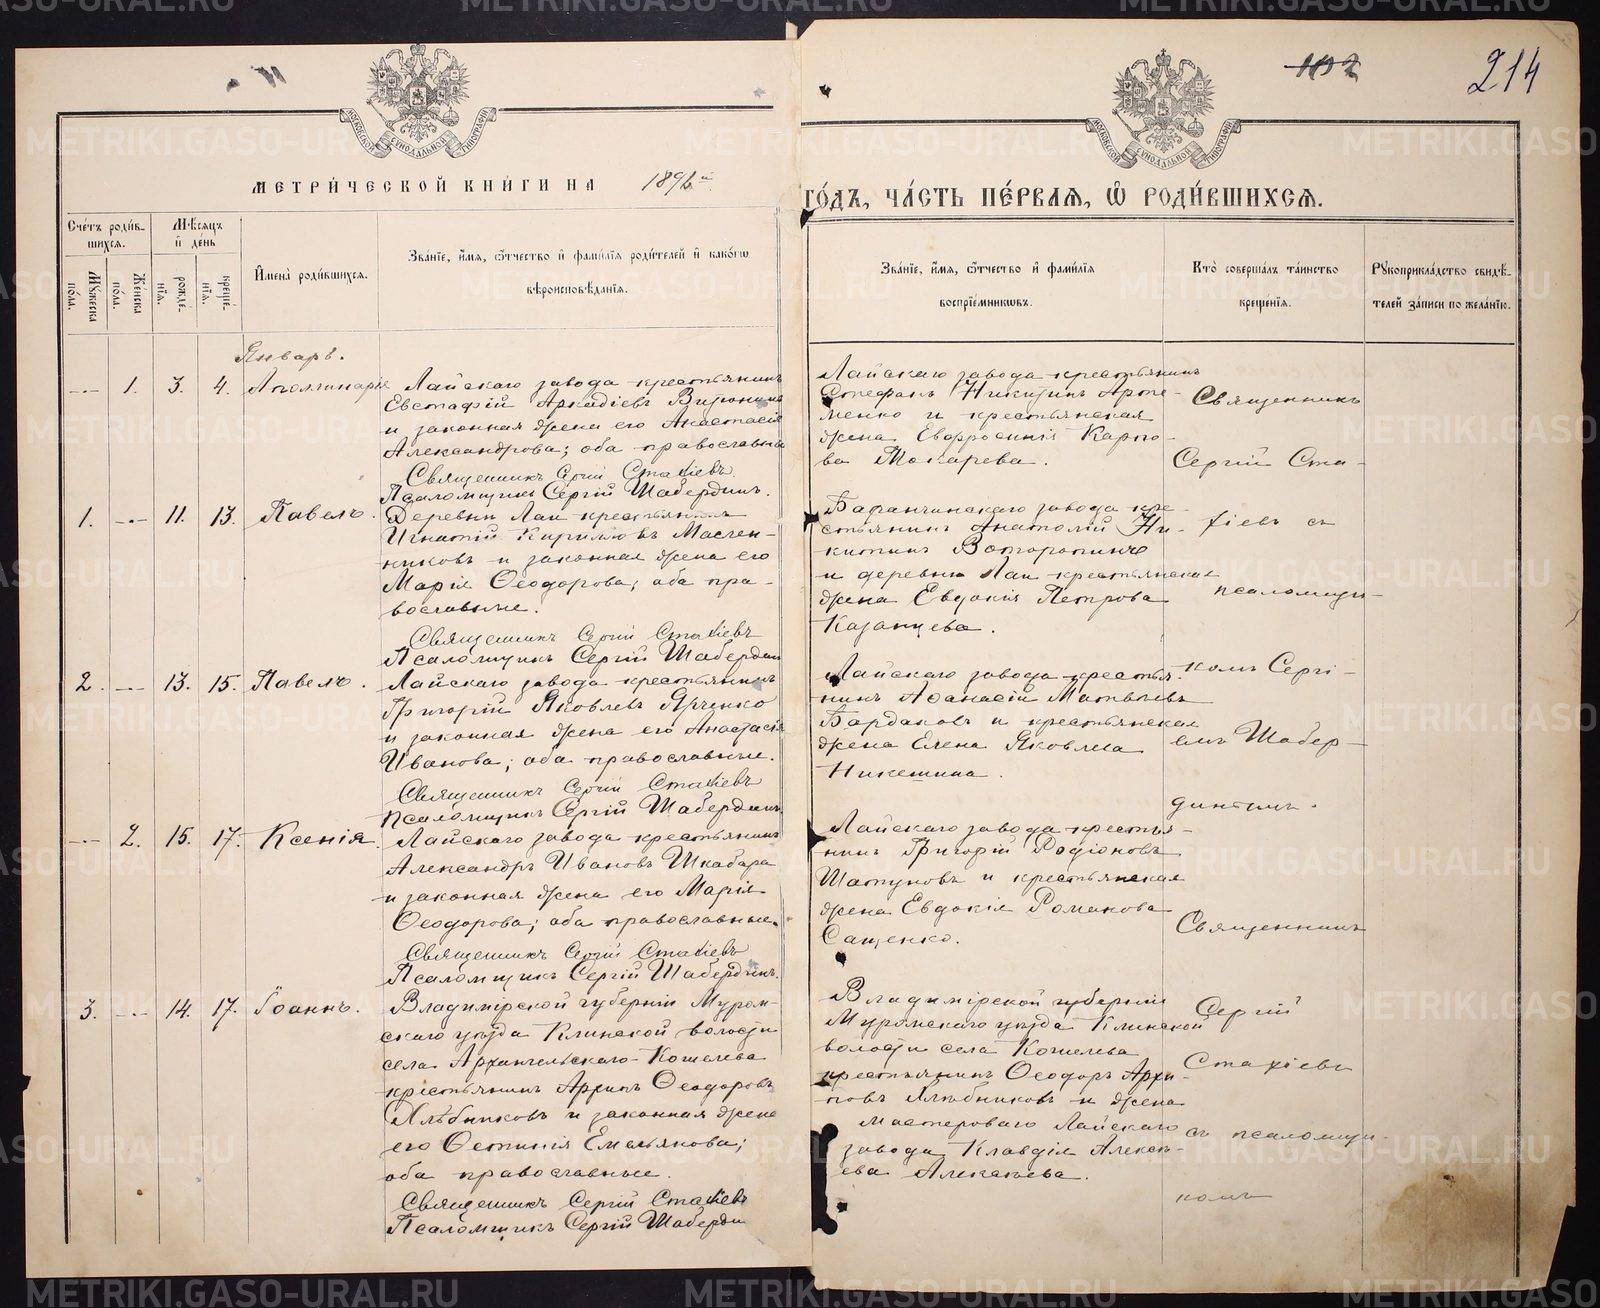 102
214
МЕТРИЧЕСКОЙ КНИГИ НА 1892й
ГОДЪ, ЧАСТЬ ПЕРВАЯ, Ѡ РОДИВШИХСЯ.
Счетъ родив-
шихся.
Мѣсяцъ
и день
Мужеска
пола.
Женска
пола.
рожде-
нія.
креще-
нія.
Имена родившихся.
Званіе, имя, ѿчество и фамилія родителей и какогѡ
вѣроисповѣданія.
Званіе, имя, ѿчество и фамилія
воспріемникѡвъ.
Кто совершалъ таинство
крещенія.
Рукоприкладство свидѣ-
телей записи по желанію.
Январь.
1. 3. 4. Аполлинарія
Лайскаго завода крестьянинъ
Евстафій Аркадіевъ
и законная жена его Анастасія
Александрова; оба православные
Священникъ Сергій Стахіевъ
Псаломщикъ Сергій Шабердинъ.
Лайскаго завода крестьянинъ
Стефанъ Никитинъ Арте-
менко и крестьянская
жена Евфросинія Карпо-
ва Токарева.
1. 11. 13. Павелъ.
Деревни Лаи крестьянинъ
Игнатій Кириловъ Маслен-
никовъ и законная жена его
Марія Ѳеодорова; оба пра-
вославные.
Священникъ Сергій Стахіевъ
Псаломщикъ Сергій Шабердинъ
Баранчинскаго завода кре-
стьянинъ Анатолій Ни-
китинъ
и деревни Лаи крестьянская
жена Евдокія Петрова
Казанцева.
2. 13. 15. Павелъ.
Лайскаго завода крестьянинъ
Григорій Яковлевъ Ярченко
и законная жена его Анастасія
Иванова; оба православные.
Священникъ Сергій Стахіевъ
Псаломщикъ Сергій Шабердинъ
Лайскаго завода крестья-
нинъ Аѳанасій Матвѣевъ
Бардаковъ и крестьянская
жена Елена Яковлева
Никешина.
2. 15. 17. Ксенія.
Лайскаго завода крестьянинъ
Александръ Ивановъ Шкабара
и законная жена его Марія
Ѳеодорова; оба православные.
Священникъ Сергій Стахіевъ
Псаломщикъ Сергій Шабердинъ.
Лайскаго завода крестья-
нинъ Григорій Родіоновъ
Шатуновъ и крестьянская
жена Евдокія Романова
Сащенко.
3. 14. 17. Іоаннъ.
Владимірской губерніи Муром-
скаго уѣзда Клинской волости
села Архангельскаго-Кошелева
крестьянинъ Архипъ Ѳеодоровъ
Хлѣбниковъ и законная жена
его Ѳетинія Емельянова;
оба православные.
Священникъ Сергій Стахіевъ
Псаломщикъ Сергій Шаберди
Владимірской губерніи
Муромскаго уѣзда Клинской
волости села Кошелева
крестьянинъ Ѳеодоръ Архи-
повъ Хлѣбниковъ и жена
мастероваго Лайскаго
завода Клавдія Алексѣ-
ева Алексѣева.
Священникъ
Сергій Ста-
хіевъ съ
псаломщи-
комъ Сергі-
емъ Шабер-
динымъ.
Священникъ
Сергій
Стахіевъ
съ псаломщи-
комъ
METRIKI.GASO-URAL.RU